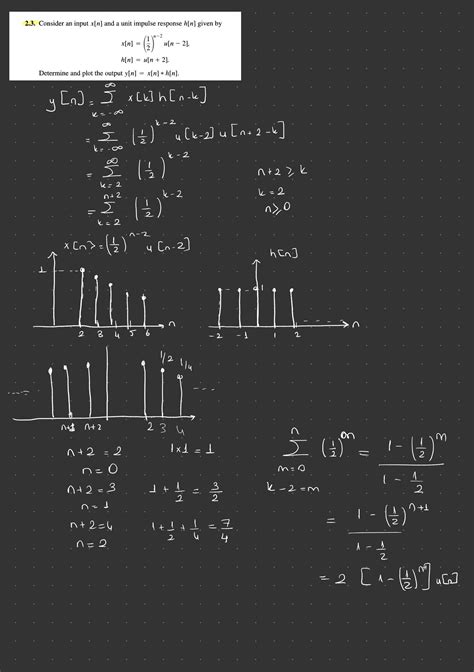 2.3. Consider an input x[n] and a unit impulse response h[n] given by
x[n] = (1/2)^{n-2} u[n − 2],
h[n] = u[n + 2].
Determine and plot the output y[n] = x[n] * h[n].
y[n] = ∑_{k=-∞}^{∞} x[k] h[n-k]
= ∑_{k=-∞}^{∞} (1/2)^{k-2} u[k-2] u[n+2-k]
= ∑_{k=2}^{∞} (1/2)^{k-2}
n+2 ≥ k
= ∑_{k=2}^{n+2} (1/2)^{k-2}
k = 2
n ≥ 0
x[n] = (1/2)^{n-2} u[n-2]
h[n]
1
1
2 3 4 5 6 n
-2 -1 1 2 n
1/2 1/4
n+1 n+2 2 3 4
n+2 = 2 1x1 = 1
n = 0
n+2 = 3 1 + 1/2 = 3/2
n = 1
n+2 = 4 1 + 1/2 + 1/4 = 7/4
n = 2
∑_{m=0}^{n} (1/2)^m = (1 - (1/2)^m) / (1 - 1/2)
k-2 = m
= (1 - (1/2)^{n+1}) / (1 - 1/2)
= 2 [1 - (1/2)] u[n]